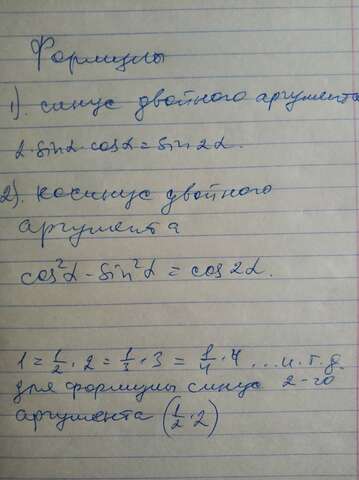 Формулы
1). синус двойного аргумента
2·sinα·cosα=sin2α.
2). косинус двойного
аргумента
cos²α-sin²α=cos2α.
1=1/2·2=1/3·3=1/4·4...и.т.д.
для формулы синус 2-го
аргумента (1/2·2)